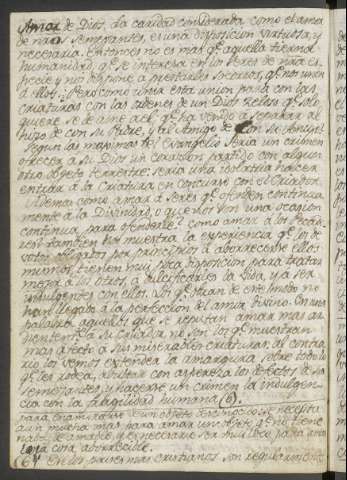 Amor de Dios. La caridad considerada como el amor
de nros semejantes, es una disposicion virtuosa, y
necesaria. Entonces no es mas qe aquella tierna
humanidad, qe se interesa en los seres de nra es-
pecie y nos dispone a prestarles socorros, qe nos unen
a ellos. ¿Pero como unir esta union para con las
criaturas con las ordenes de un Dios zeloso qe solo
quiere se le ame a el; qe ha venido a separar al
hijo de con su Padre, y al Amigo de con su Amigo?
Segun las maximas del Evangelio seria un crimen
ofrecer a su Dios un corazon partido con algun
otro objeto terrestre: seria una idolatria hacer
entrar a la Criatura en concurso con el Criador.
Ademas como amar a seres qe ofenden continua
mente a la Divinidad, o que nos son una ocasion
continua para ofenderle? como amar a los Pecado-
res? tambien nos muestra la experiencia qe los de-
votos obligados por principios a aborrecerse ellos
mismos, tienen mui poca disposicion para tratar
mejor a los otros, a dulcificarles la vida, y a ser
indulgentes con ellos. Los qe obran de este modo no
han llegado a la perfeccion del amor Divino. En una
palabra aquellos que se reputan amar mas ar-
dientemte a su Criador no son los qe muestran
mas afecto a sus miserables criaturas; al contra
rio los vemos extender la amargura sobre todo lo
qe les rodea, notar con aspereza los defectos de sus
semejantes y hacerse un crimen la indulgen-
cia con la fragilidad humana (6).
para enamorarse de un objeto desconocido se necesita
aun mucho mas para amar un objeto qe no tiene
nada de amable y es necesario ser mui loco para amar
una cosa aborrecible.
(6) En los primeros cristianos son regularmente